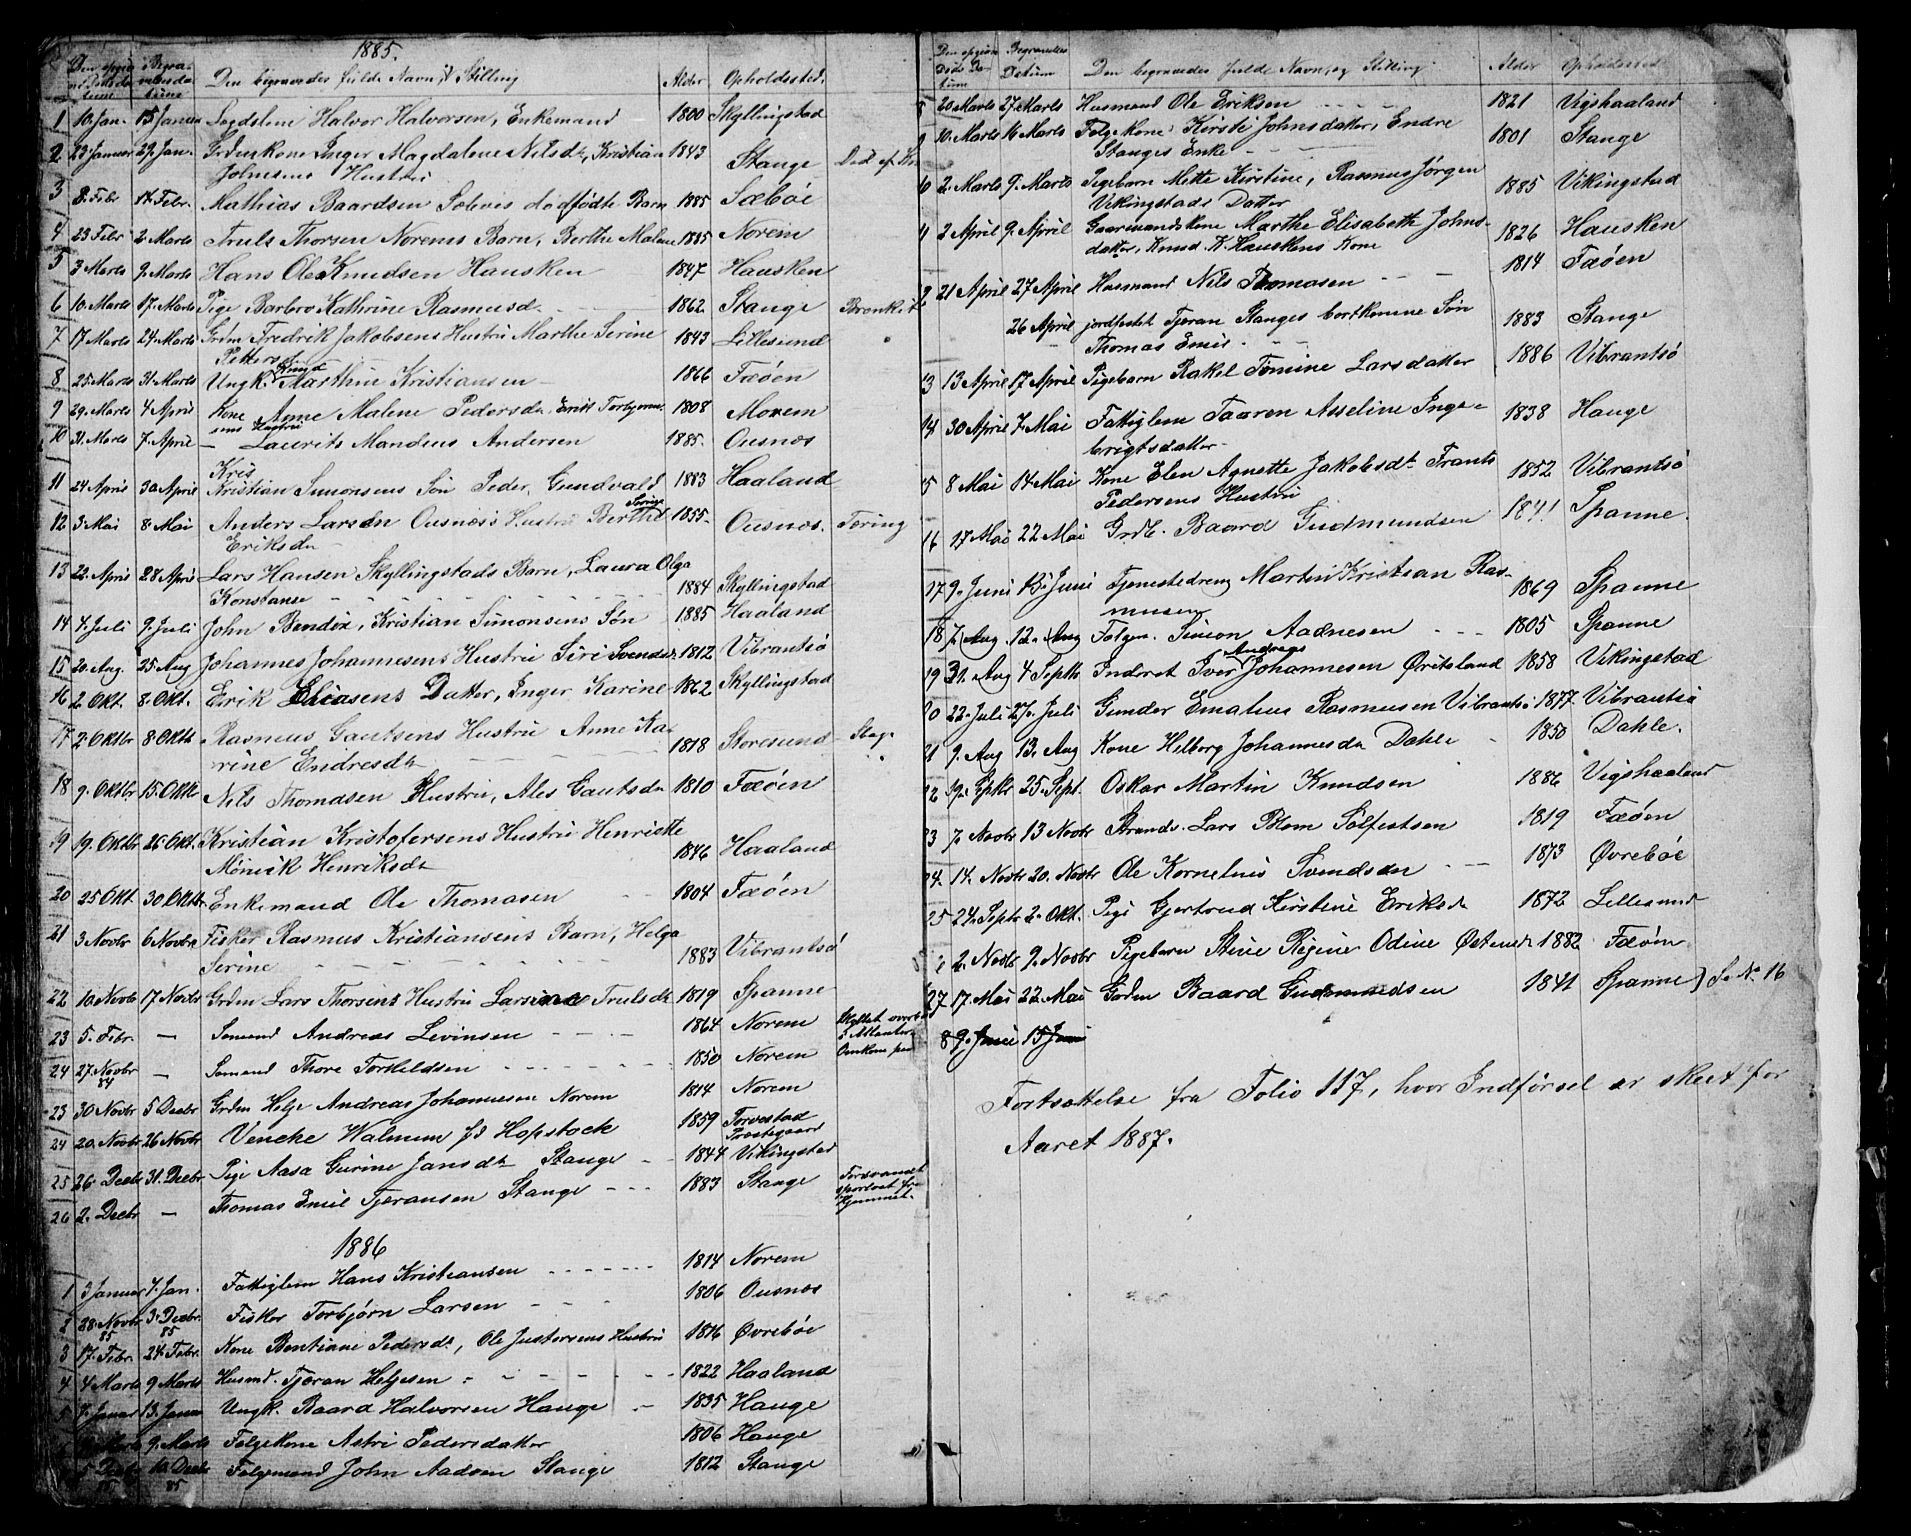 1885.
Begravedes Den begravedes fulde Navn og Stilling Alder Opholdssted.
1 10. Jan. 15 Januar Logdslem Halvor Halvorsen, Enkemand 1800 Skyllingstad
2 23 Januar 29. Jan. Grdmskone Inger Magdalene Nilsdt, Kristian 1843 Stange Død af
Johnsens Hustru
3 8. Febr 14. Febr. Mathias Baardsen Sæbøes dødfødte Barn 1885 Sæbøe
4 23 Febr 2. Marts Truls Thorsen Norems Barn, Berthe Malene 1885 Norem
5 3 Marts 9. Marts Hans Ole Knudsen Hausken 1847 Hausken
6 10. Marts 17. Marts Pige Barbro Kathrine Rasmusd. 1862 Stange Bronkit
7 17 Marts 24. Marts Grdm Fredrik Jakobsens Hustru Marthe Serine 1843 Lillesund
Pettersd
8 25. Marts 31. Marts Ungk. Knud Marthin Kristiansen 1866 Fæøen
9 29. Marts 4. April Kone Anne Malene Pedersd. Eriks Torbjørn- 1808 Norem
sens Hustru
10 31. Marts 7. April – Laurits Mandeus Andersen 1885. Ousnæs
Kris
11 24 April 30 April Kristian Simonsens Søn Peder Grundvald 1883 Haaland
12 3. Mai 8. Mai Anders Larsen Ousnæs's Hustru Berthe Serine 1855 Ousnæs. Tæring
Eriksdn
13 22. April 28 April Lars Hansen Skyllingstads Barn, Laura Olga
Konstanse 1884 Skyllingstad
14 4. Juli 9. Juli John Bendix, Kristian Simonsens Søn 1885 Haaland
15 20. Aug. 25 Aug Johannes Johannesens Hustru Siri Svendsd. 1812 Vibrantsø
16 2. Okt. 8. Okt. Erik Eliasens Datter, Inger Karine 1862 Skyllingstad
17 2. Oktbr 8 Oktb Rasmus Gautsens Hustru Anne Ka- 1818 Storesund Slag.
rine Endresdt
18 9. Oktbr 15 Oktb Nils Thomasen Hustru, Ales Gautsdn 1810 Fæøen
19 19. Oktbr 26 Okt. Kristian Kristofersens Hustru Henriette 1846 Haaland
Mønick Henriksdn
20 25 Okt 30 Oktbr. Enkemand Ole Thomasen 1804 Fæøen
21 3 Novbr 6 Novbr Fisker Rasmus Kristiansens Barn, Helga
Serine 1883 Vibrantsø
22 10 Novb 17 Novbr Grdm Lars Thorsens Hustru Larsine Trulsdt 1819 Spanne
23 5. Febr. – Sømand Andreas Levinsen 1864 Norem Skyllet overb
i Atlanter-
24 27. Novbr 84 – Sømand Thore Torkildsen 1850 Norem Omkom paa
23 30 Novbr 5 Decbr Grdm Helje Andreas Johannesen Norem 1814 Norem
24 20. Novbr 26 Novbr Vencke Walmum fd Hopstock 1859 Torvestad
Præstegaard
25 26. Decbr 31. Decbr Pige Aasa Gurine Jansdt Stange 1844 Vikingstad
26 2. Decbr – Thomas Emil Tjæransen Stange 1883 Stange Forsvandt
sporløst fra
Hjemmet.
1886
1 3 Januar 7. Jan. Fattiglem Hans Kristiansen 1814 Norem
2 28. Novbr 85 3. Decbr. 85 Fisker Torbjørn Larsen 1806 Ousnæs
3 17. Febr. 24. Febr. Kone Bentiane Pedersdt, Ole Justersens Hustru 1816 Øvrebøe
4 4 Marts 9 Marts Husmd. Tjæran Heljesen 1822 Haaland
5 7. Januar 13. Januar Ungk. Baard Halvorsen Hauge 1835 Hauge
Marts 9. Marts Følgekone Astri Pedersdatter 1806 Hauge
5 Decbr 85 10 Decbr 85 Følgemand John Aadsen Stange 1812 Stange
Den opgivne Døds Da-
tum Begravelses Datum Den begravedes fulde Navn, og Stilling Alder Opholdssted
8 20 Marts 27 Marts Husmand Ole Eriksen 1821 Vigshaaland
9 10. Marts 16 Marts Følgekone Kirsti Johnsdatter, Endre 1801 Stange
Stanges Enke
10 2. Marts 9. Marts Pigebarn Mette Kirstine, Rasmus Jørgen 1885 Vikingstad
Vikingstads Datter
11 2 April 9. April Gaarmandskone Marthe Elisabeth Johns- 1826 Hausken
datter, Knud K. Hauskens Kone
12 21 April 27 April Husmand Nils Thomasen 1814 Fæøen
26 April jordfæstet Tjæran Stanges bortkomne Søn 1883 Stange
Thomas Emil
13 13 April 17 April Pigebarn Rakel Tomine Larsdatter 1886 Vibrantsø
14 30 April 7. Mai Fattiglem Taaren Asseline Inge- 1838 Hauge
brigtsdatter
15 8 Mai 14 Mai Kone Elen Agnette Jakobsdt. Frants 1852 Vibrantsø
Pedersens Hustru
16 17 Mai 22 Mai Grdb. Baard Gudmundsen 1841 Spanne.
17 9. Juni 13. Juni Tjenestedreng Martin Kristian Ras- 1869 Spanne
musen
18 7. Aug 12. Aug Følgm. Simon Aadnesen 1805 Spanne
19 31. Aug 4 Septb Inderst Iver Andreas Johannesen Øritsland 1858 Vikingstad
20 22. Juli 27. Juli Gunder Ematius Rasmusen Vibrantsø 1877 Vibrantsø
21 9. Aug 13. Aug Kone Helborg Johannesdn Dahle 1850 Dahle.
22 19. Sptbr 25. Sept. Oskar Martin Knudsen 1886 Vigshaaland
23 7. Novbr 13 Novbr Strands. Lars Blom Solfestsen 1819 Fæøen
24. 14. Novbr 20. Novbr Ole Kornelius Svendsen 1873 Øvrebøe
25 24. Septr 2. Okt. Pige Gjertrud Kirstine Eriksdn 1872 Lillesund
2. Novbr 9. Novbr Pigebarn Stine Regine Odine Østensdt 1882 Fæøen
27 17. Mai 22. Mai Grdm Baard Gudmundsen 1841 Spanne) Se No 16
8 9. Juni 15 Juni
Fortsættelse fra Folio 117, hvor Indførsel er skeet for
Aaret 1887.